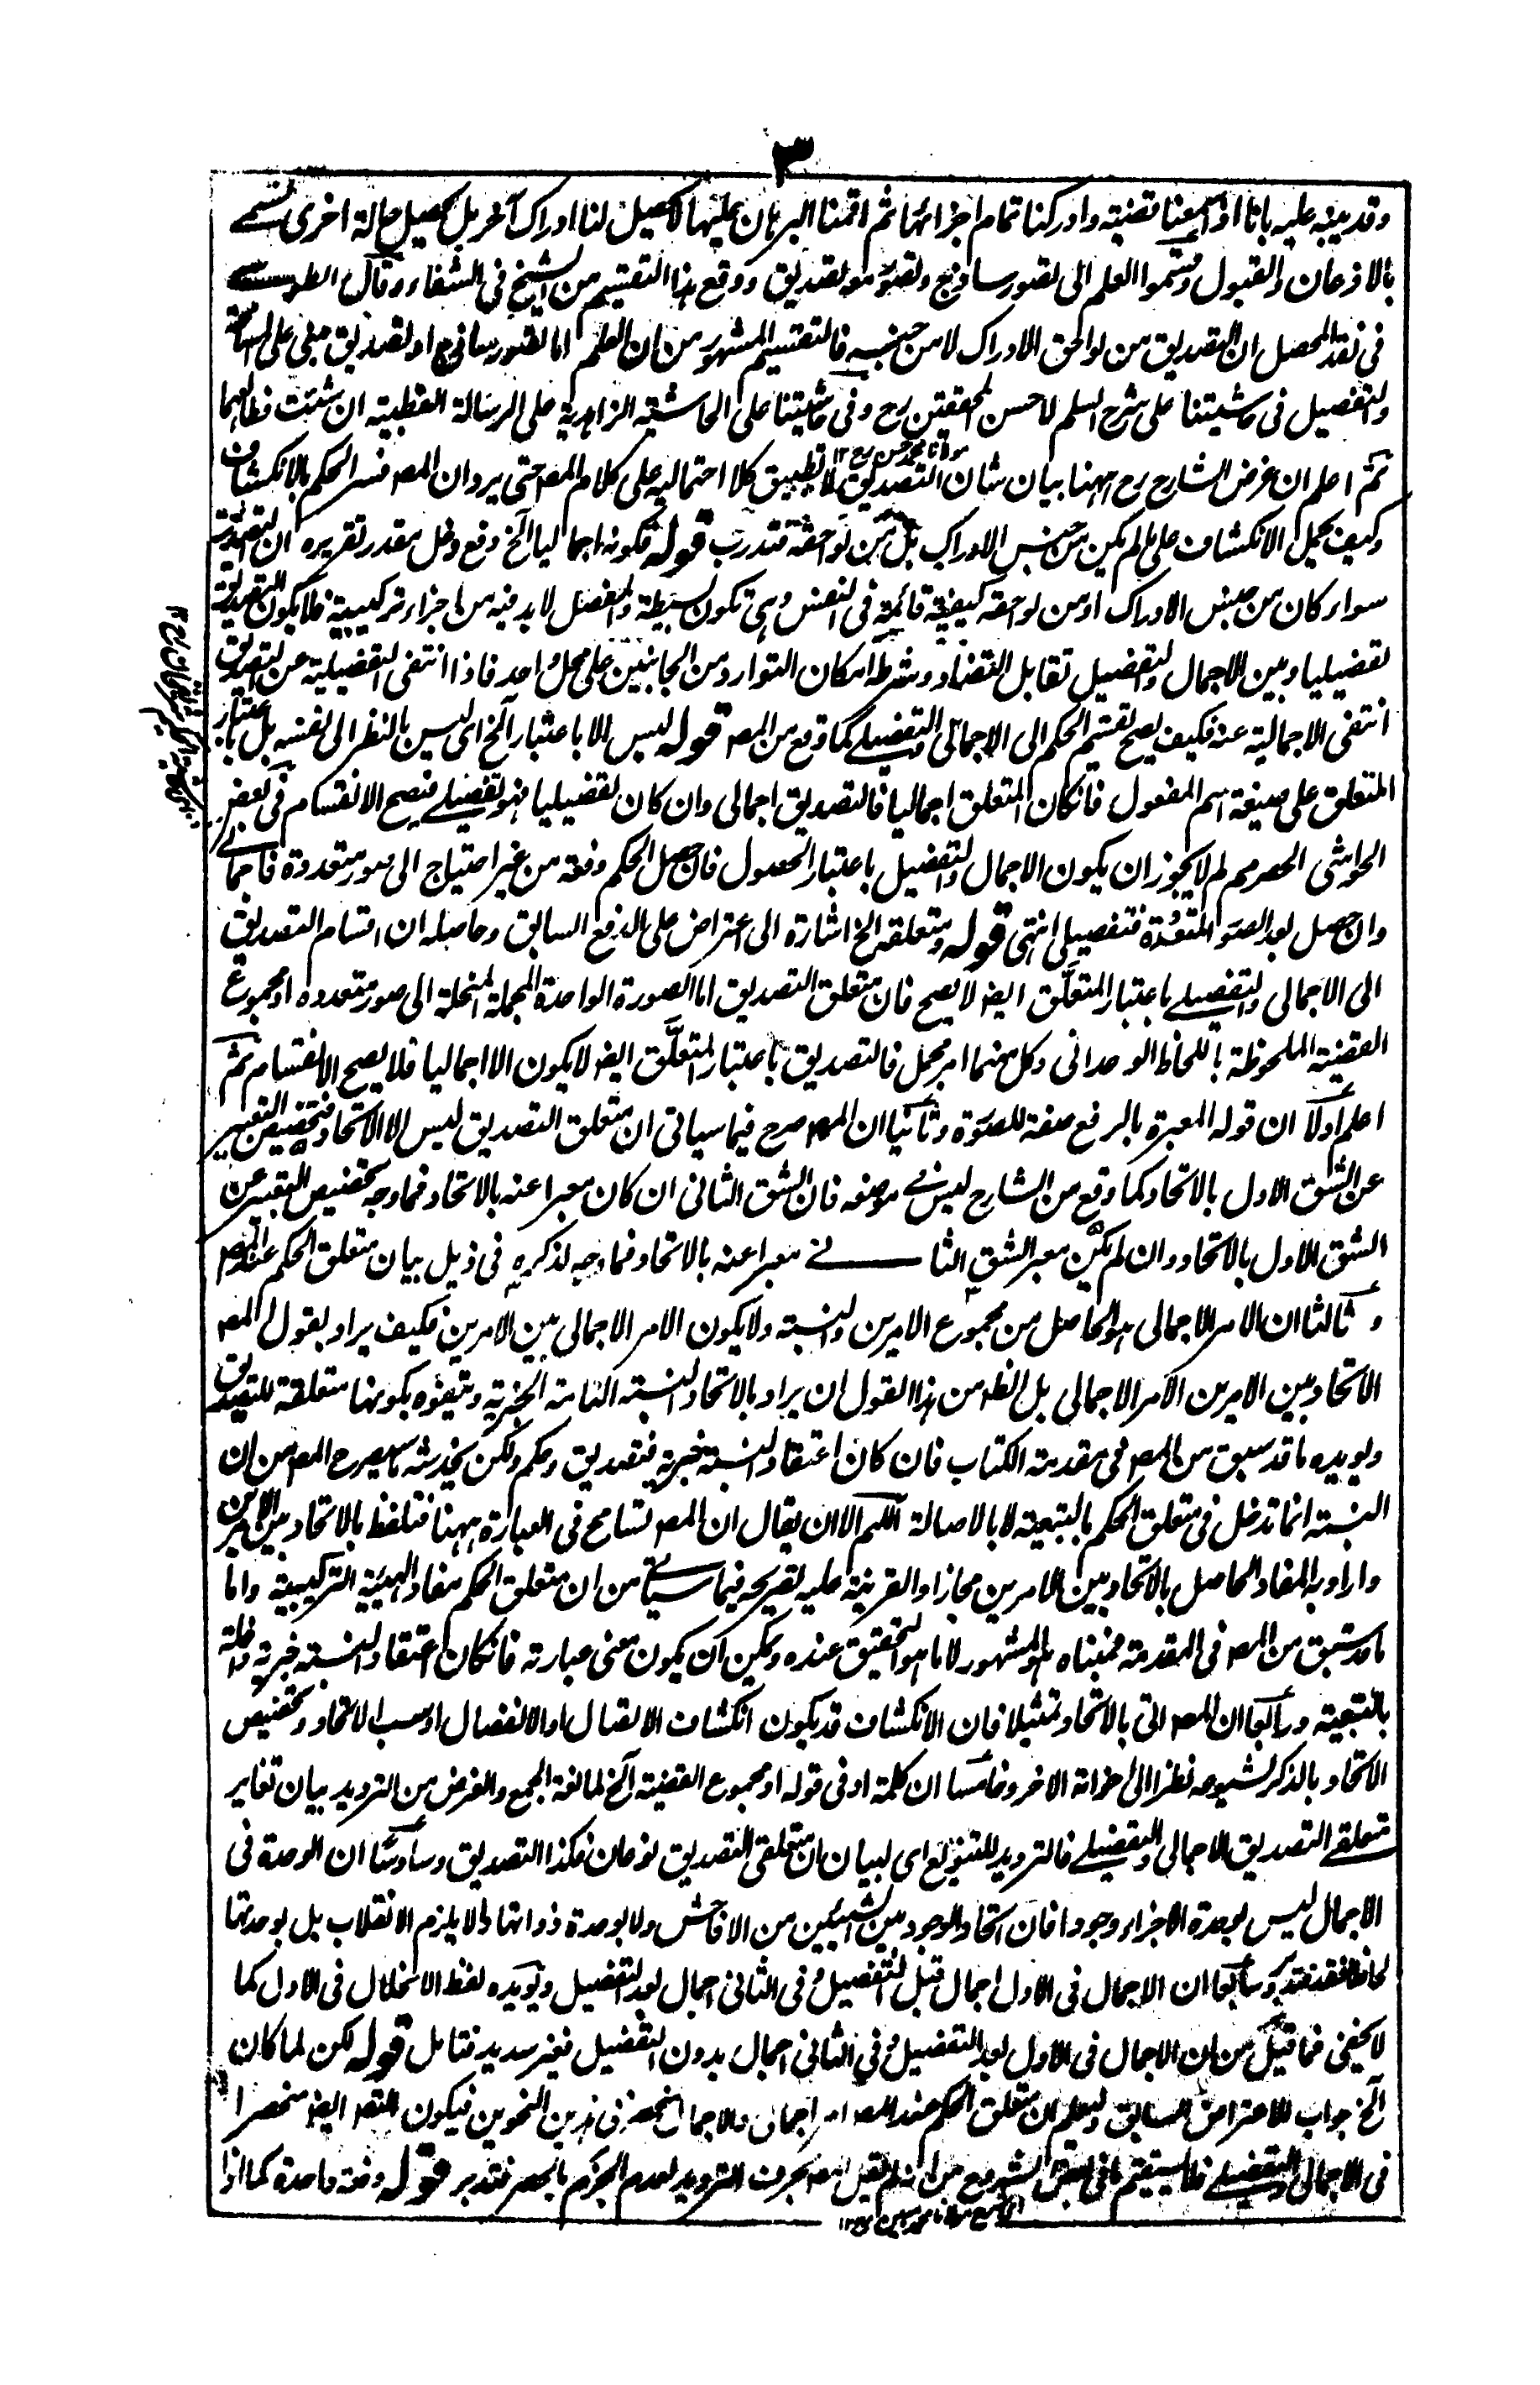 ٣
وقد ينبه عليه بانا اذا سمعنا قضية وادركنا تمام اجزائها ثم اقمنا البرهان عليها لا يحصل لنا ادراك آخر بل يحصل حالة اخرى تسمى
بالاذعان والقبول وقسموا العلم الى تصور ساذج وتصور معه تصديق ووقع هذا التقسيم من الشيخ فى الشفاء وقال الطوسى
فى نقد المحصل ان التصديق من لواحق الادراك لا من جنسه فالتقسيم المشهور من ان العلم اما تصور ساذج او تصديق مبنى على المسامحة
والتفصيل فى حاشيتنا على شرح السلم لاحسن المحققين رح وفى حاشيتنا على الحاشية الزاهدية على الرسالة القطبية ان شئت فطالعهما
مولانا محمد حسن رح ١٢
ثم اعلم ان غرض الشارح رح ههنا بيان شان التصديق لا تطبيق كلا احتماليه على كلام المصـ حتى يرد ان المصـ فسر الحكم بالانكشاف
وكيف يحمل الانكشاف على ما لم يكن من جنس الادراك بل من لواحقه فتدرب قوله فكونه اجماليا آلخ دفع دخل مقدر تقريره ان التصديق
سواء كان من جنس الادراك او من لواحقه كيفية قائمة فى النفس وهى تكون بسيطة والمفصل لا بد فيه من اجزاء تركيبية فلا يكون التصديق
تفصيليا وبين الاجمال والتفصيل تقابل التضاد وشرطه امكان التوارد من الجانبين على محل واحد فاذا انتفى التفصيلية عن التصديق
انتفى الاجمالية عنه فكيف يصح تقسيم الحكم الى الاجمالى والتفصيلى كما وقع من المصـ قوله ليس الا باعتبار آلخ اى ليس بالنظر الى نفسه بل باعتبار
المتعلق على صيغة اسم المفعول فانكان المتعلق اجماليا فالتصديق اجمالى وان كان تفصيليا فهو تفصيلى فيصح الانقسام فى بعض
الحواشى الحصر مم لم لا يجوز ان يكون الاجمال والتفصيل باعتبار الحصول فان حصل الحكم دفعة من غير احتياج الى صور متعددة فاجمالى
وان حصل بعد الصور المتعددة فتفصيلى انتهى قوله ومتعلقه الخ اشارة الى اعتراض على الدفع السابق وحاصله ان اقسام التصديق
الى الاجمالى والتفصيلى باعتبار المتعلق ايضـ لا يصح فان متعلق التصديق اما الصورة الواحدة المجملة المنحلة الى صور متعددة او مجموع
القضية الملحوظة باللحاظ الوحدانى وكل منهما امر مجمل فالتصديق باعتبار المتعلق ايضـ لا يكون الا اجماليا فلا يصح الانقسام ثم
اعلم اولا ان قوله المعبرة بالرفع صفة للصورة وثانيا ان المصـ صرح فيما سياتى ان متعلق التصديق ليس الا الاتحاد فتخصيص التعبير
عن الشق الاول بالاتحاد كما وقع من الشارح ليس فى موضعه فان الشق الثانى ان كان معبرا عنه بالاتحاد فما وجه تخصيص التعبير عن
الشق الاول بالاتحاد وان لم يكن معبر الشق الثانى معبرا عنه بالاتحاد فما وجه لذكره فى ذيل بيان متعلق الحكم عند المصـ
وثالثا ان الامر الاجمالى هو الحاصل من مجموع الامرين والنسبة ولا يكون الامر الاجمالى بين الامرين فكيف يراد بقول المصـ
الاتحاد بين الامرين الامر الاجمالى بل الظـ من هذا القول ان يراد بالاتحاد النسبة التامة الخبرية ويتفوه بكونها متعلقة للتصديق
ويويده ما قد سبق من المصـ فى مقدمة الكتاب فان كان اعتقادا لنسبة خبرية فتصديق وحكم ولكن يخدشه ما سيصرح المصـ من ان
النسبة انما تدخل فى متعلق الحكم بالتبعية لا بالاصالة اللهم الا ان يقال ان المصـ تسامح فى العبارة ههنا فتلفظ بالاتحاد بين الامرين
واراد به المفاد الحاصل بالاتحاد بين الامرين مجازا والقرينة عليه تصريحه فيما سياتى من ان متعلق الحكم مفاد الهيئة التركيبية واما
ما قد سبق من المصـ فى المقدمة فمبناه هو المشهور لا ما هو التحقيق عنده ويمكن ان يكون معنى عبارته فانكان اعتقادا لنسبة خبرية داخلة
بالتبعية ورابعا ان المصـ اتى بالاتحاد تمثيلا فان الانكشاف قد يكون انكشاف الاتصال او الانفصال او سلب الاتحاد وتخصيص
الاتحاد بالذكر لشيوعه نظرا الى اخواته الاخر وخامسا ان كلمة او فى قوله او مجموع القضية آلخ لمانعة الجمع والغرض من الترديد بيان تغاير
متعلقى التصديق الاجمالى والتفصيلى فالترديد للتنويع اى لبيان ان متعلقى التصديق نوعان فكذا التصديق وسادسا ان الوحدة فى
الاجمال ليس بوحدة الاجزاء وجودا فان اتحاد الوجود بين الشيئين من الافاحش ولا بوحدة ذواتها والا يلزم الانقلاب بل بوحدتها
لحاظا فقط فتدبر وسابعا ان الاجمال فى الاول اجمال قبل التفصيل وفى الثانى اجمال بعد التفصيل ويويده لفظ الانحلال فى الاول كما
لا يخفى فما قيل من ان الاجمال فى الاول بعد التفصيل وفى الثانى اجمال بدون التفصيل فغير سديد فتامل قوله لكن لما كان
آلخ جواب للاعتراض السابق وليعلم ان متعلق الحكم عند المصـ امر اجمالى والاجمال انحصر فى هذين النحوين فيكون التصـ ايضـ منحصرا
فى الاجمالى والتفصيلى فلا يستقيم ما فى بعض الشروح من انه لم يقيل المصـ بحرف الترديد لعدم الجزم بالحصر فتدبر قوله دفعة واحدة كما اذا